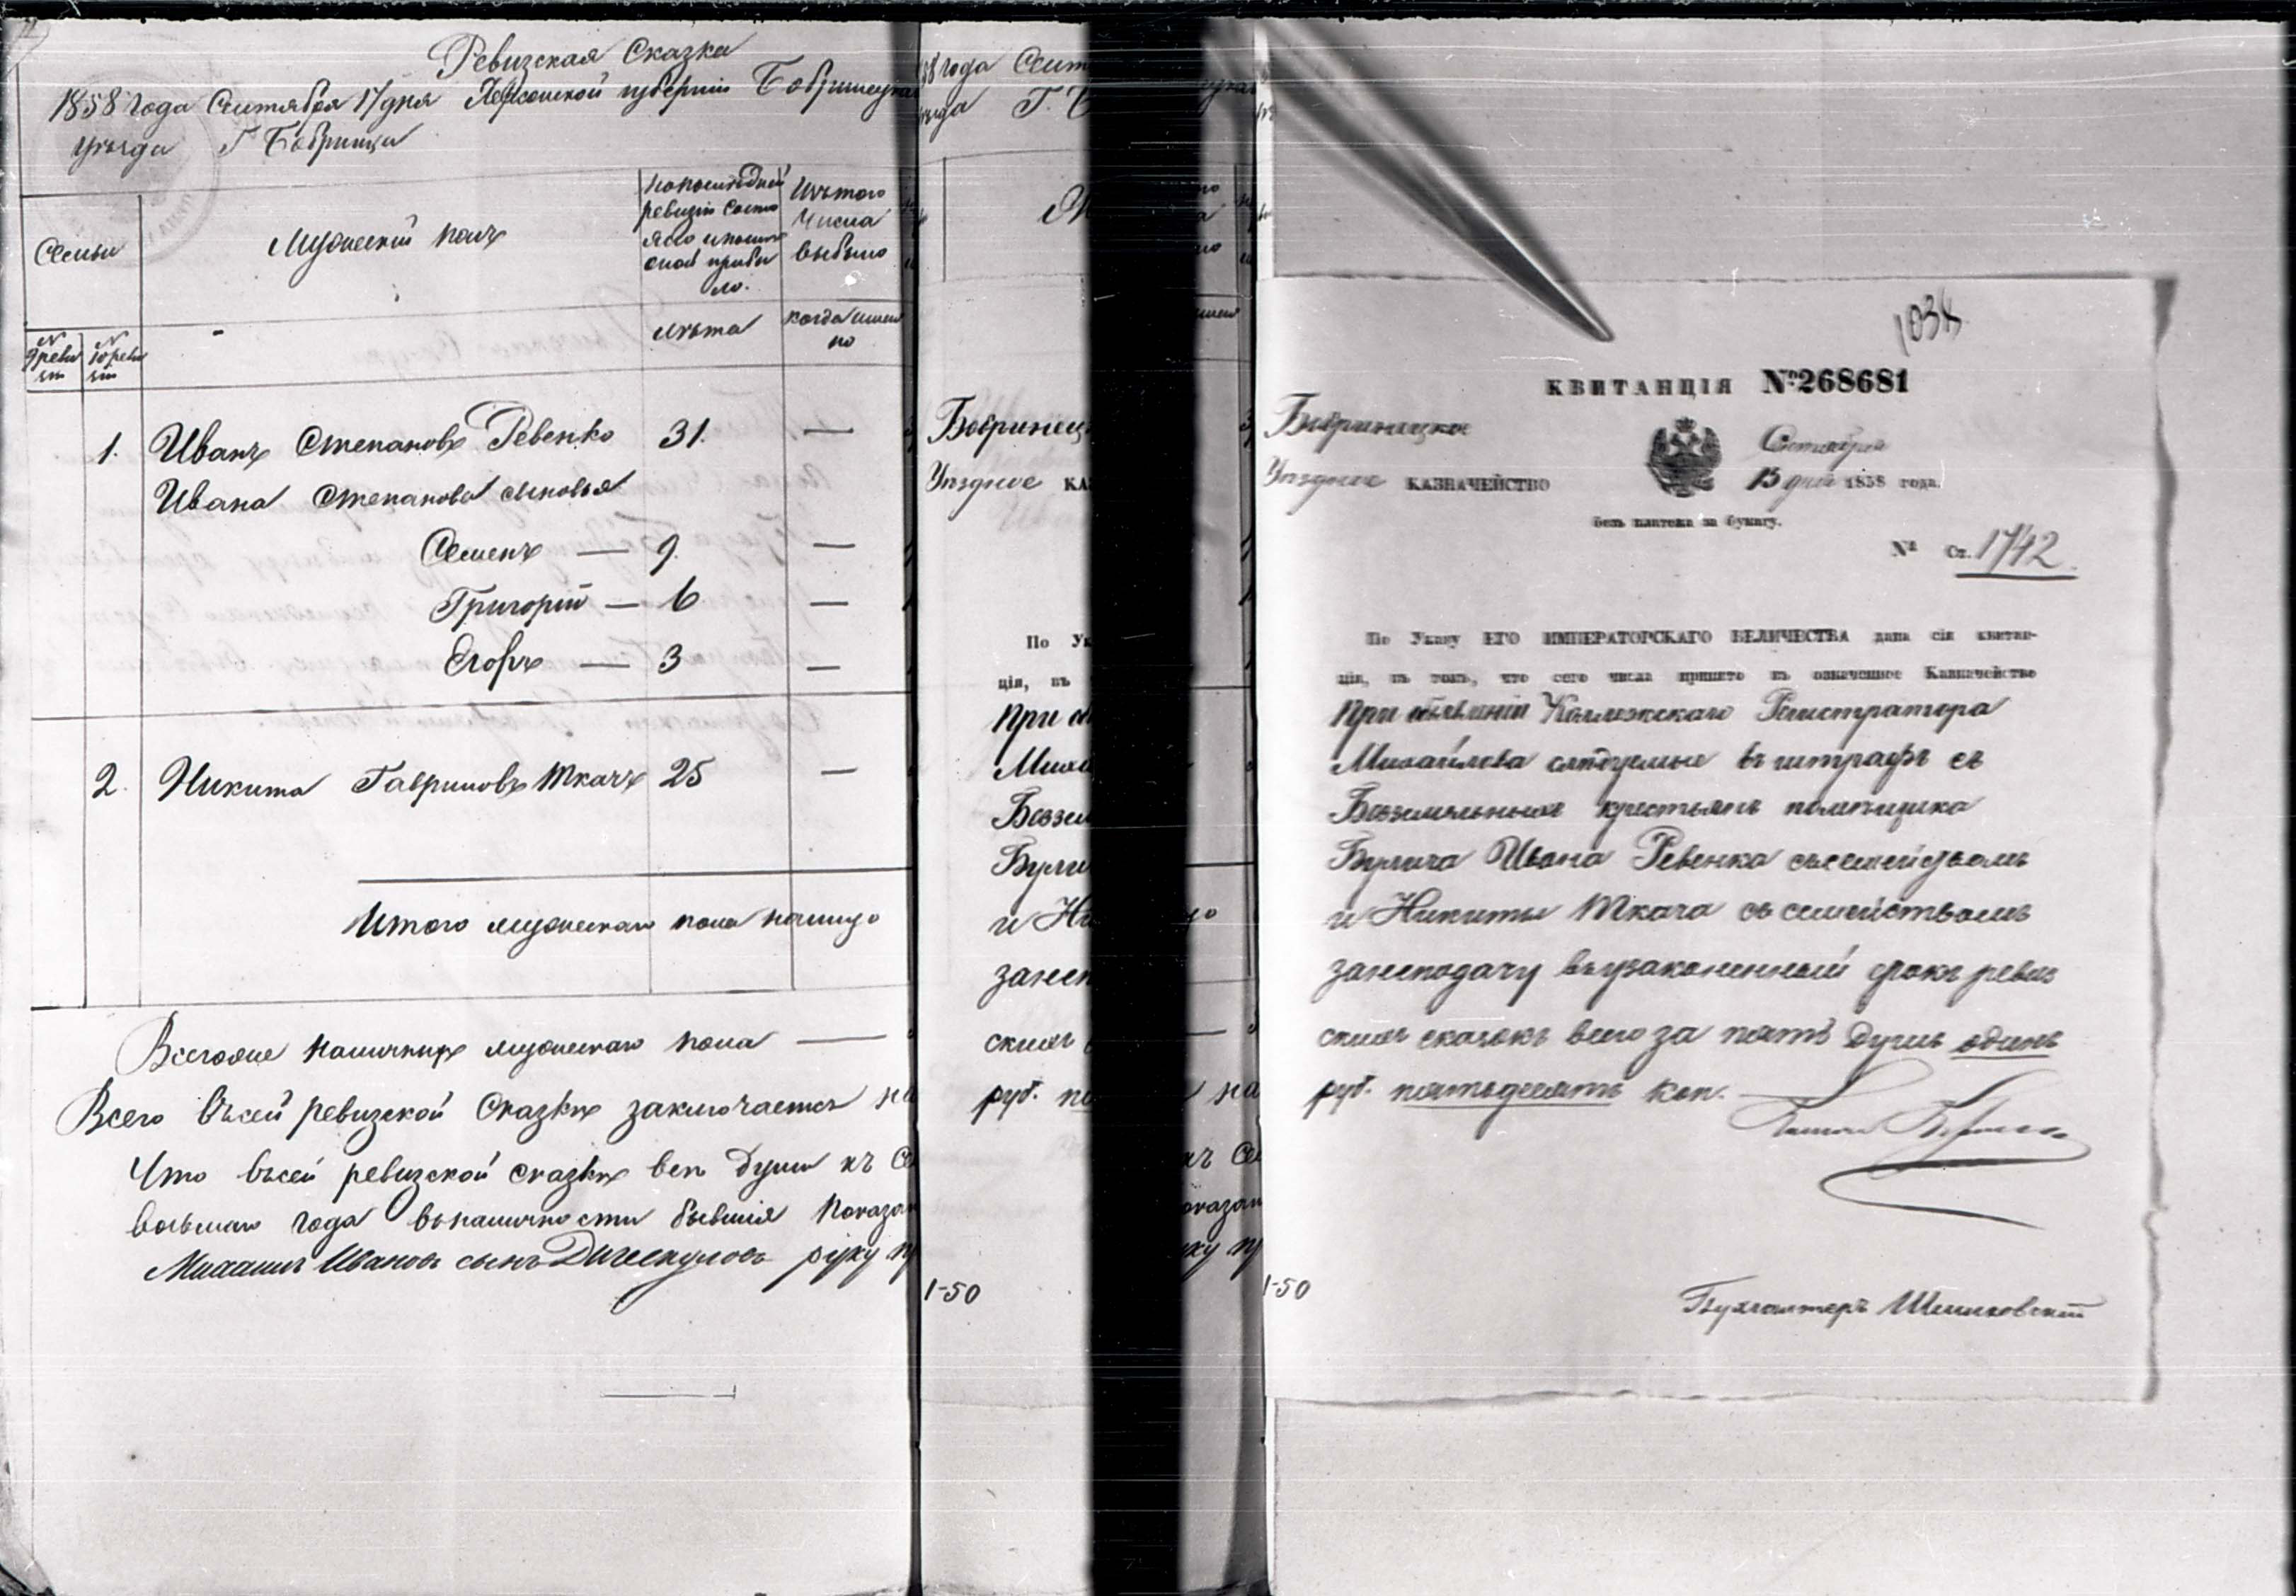 Ревизская Сказка
1858 года Сентября 17 дня Херсонской губерніи Бобринецка
уезда Г Бобринца
Семьи
Мужескій полъ
по последней
ревизіи состо
яло и после
оной прибы
ло.
Изъ того
числа
выбыло
лѣта
когда имен
но
№
9 реви
зіи
№
10 реви
зіи
1. Иванъ Степановъ Ревенко 31. —
Ивана Степанова сыновья
Семенъ — 9. —
Григорій — 6 —
Егоръ — 3 —
2. Никита Гавриловъ Ткачъ 25 —
Итого мужескаго пола налицо
Всего наличныхъ мужескаго пола —
Всего въ сей ревизской Сказкѣ заключается на
Что въ сей ревизской сказкѣ всѣ души къ Се
восьмаго года въ наличности бывшія показан
Михаилъ Ивановъ сынъ руку п
58 года Сент
уезда Г. Б
Бобринец
Уездное КА
По Ук
ція, въ
При об
Миха
Беззем
Були
и Ни
занеп
скихъ
руб. пя
1-50
1034
КВИТАНЦІЯ № 268681
Бобринецкое
Сентября
Уездное КАЗНАЧЕЙСТВО
15 дня 1858 года.
безъ платежа за бумагу.
№ Ст. 1742.
По Указу ЕГО ИМПЕРАТОРСКАГО ВЕЛИЧЕСТВА дана сія квитан-
ція, въ томъ, что сего числа принято въ означенное Казначейство
При объявленіи Коллежскаго Регистратора
Михайлова следуемые въ штрафъ съ
Безземельныхъ крестьянъ помѣщика
Булича Ивана Ревенка съ семействомъ
и Никиты Ткача съ семействомъ
занеподачу въ узаконенный срокъ ревиз
скихъ сказокъ всего за пять душъ одинъ
руб. пятьдесятъ коп.
1-50
Бухгалтеръ Шишковскій